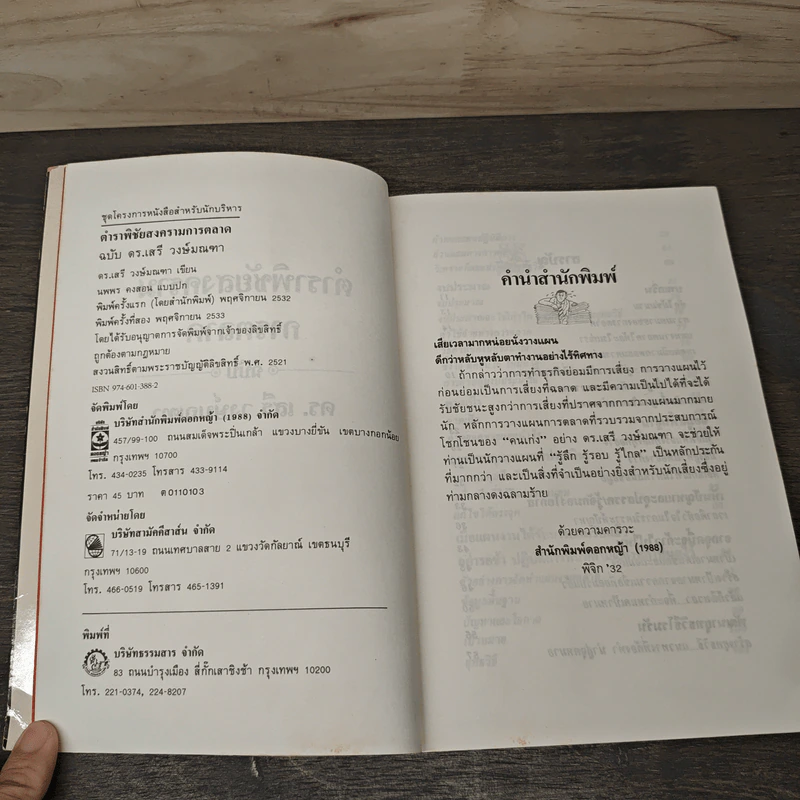 ชุดโครงการหนังสือสำหรับนักบริหาร
ตำราพิชัยสงครามการตลาด
ฉบับ ดร.เสรี วงษ์มณฑา
ดร.เสรี วงษ์มณฑา เขียน
นพพร คงสอน แบบปก
พิมพ์ครั้งแรก (โดยสำนักพิมพ์) พฤศจิกายน 2532
พิมพ์ครั้งที่สอง พฤศจิกายน 2533
โดยได้รับอนุญาตการจัดพิมพ์จากเจ้าของลิขสิทธิ์
ถูกต้องตามกฎหมาย
สงวนลิขสิทธิ์ตามพระราชบัญญัติลิขสิทธิ์ พ.ศ. 2521
ISBN 974-601-388-2
จัดพิมพ์โดย
บริษัทสำนักพิมพ์ดอกหญ้า (1988) จำกัด
457/99-100 ถนนสมเด็จพระปิ่นเกล้า แขวงบางยี่ขัน เขตบางกอกน้อย
กรุงเทพฯ 10700
โทร. 434-0235 โทรสาร 433-9114
ราคา 45 บาท ต 0110103
จัดจำหน่ายโดย
บริษัทสามัคคีสาส์น จำกัด
71/13-19 ถนนเทศบาลสาย 2 แขวงวัดกัลยาณ์ เขตธนบุรี
กรุงเทพฯ 10600
โทร. 466-0519 โทรสาร 465-1391
พิมพ์ที่
บริษัทธรรมสาร จำกัด
83 ถนนบำรุงเมือง สี่กั๊กเสาชิงช้า กรุงเทพฯ 10200
โทร. 221-0374, 224-8207
คำนำสำนักพิมพ์
เสียเวลามากหน่อยนั่งวางแผน
ดีกว่าหลับหูหลับตาทำงานอย่างไร้ทิศทาง
ถ้ากล่าวว่าการทำธุรกิจย่อมมีการเสี่ยง การวางแผนไว้
ก่อนย่อมเป็นการเสี่ยงที่ฉลาด และมีความเป็นไปได้ที่จะได้
รับชัยชนะสูงกว่าการเสี่ยงที่ปราศจากการวางแผนมากมาย
นัก หลักการวางแผนการตลาดที่รวบรวมจากประสบการณ์
โชกโชนของ "คนเก่ง" อย่าง ดร.เสรี วงษ์มณฑา จะช่วยให้
ท่านเป็นนักวางแผนที่ "รู้ลึก รู้รอบ รู้ไกล" เป็นหลักประกัน
ที่มากกว่า และเป็นสิ่งที่จำเป็นอย่างยิ่งสำหรับนักเสี่ยงซึ่งอยู่
ท่ามกลางดงฉลามร้าย
ด้วยความคารวะ
สำนักพิมพ์ดอกหญ้า (1988)
พิจิก '32